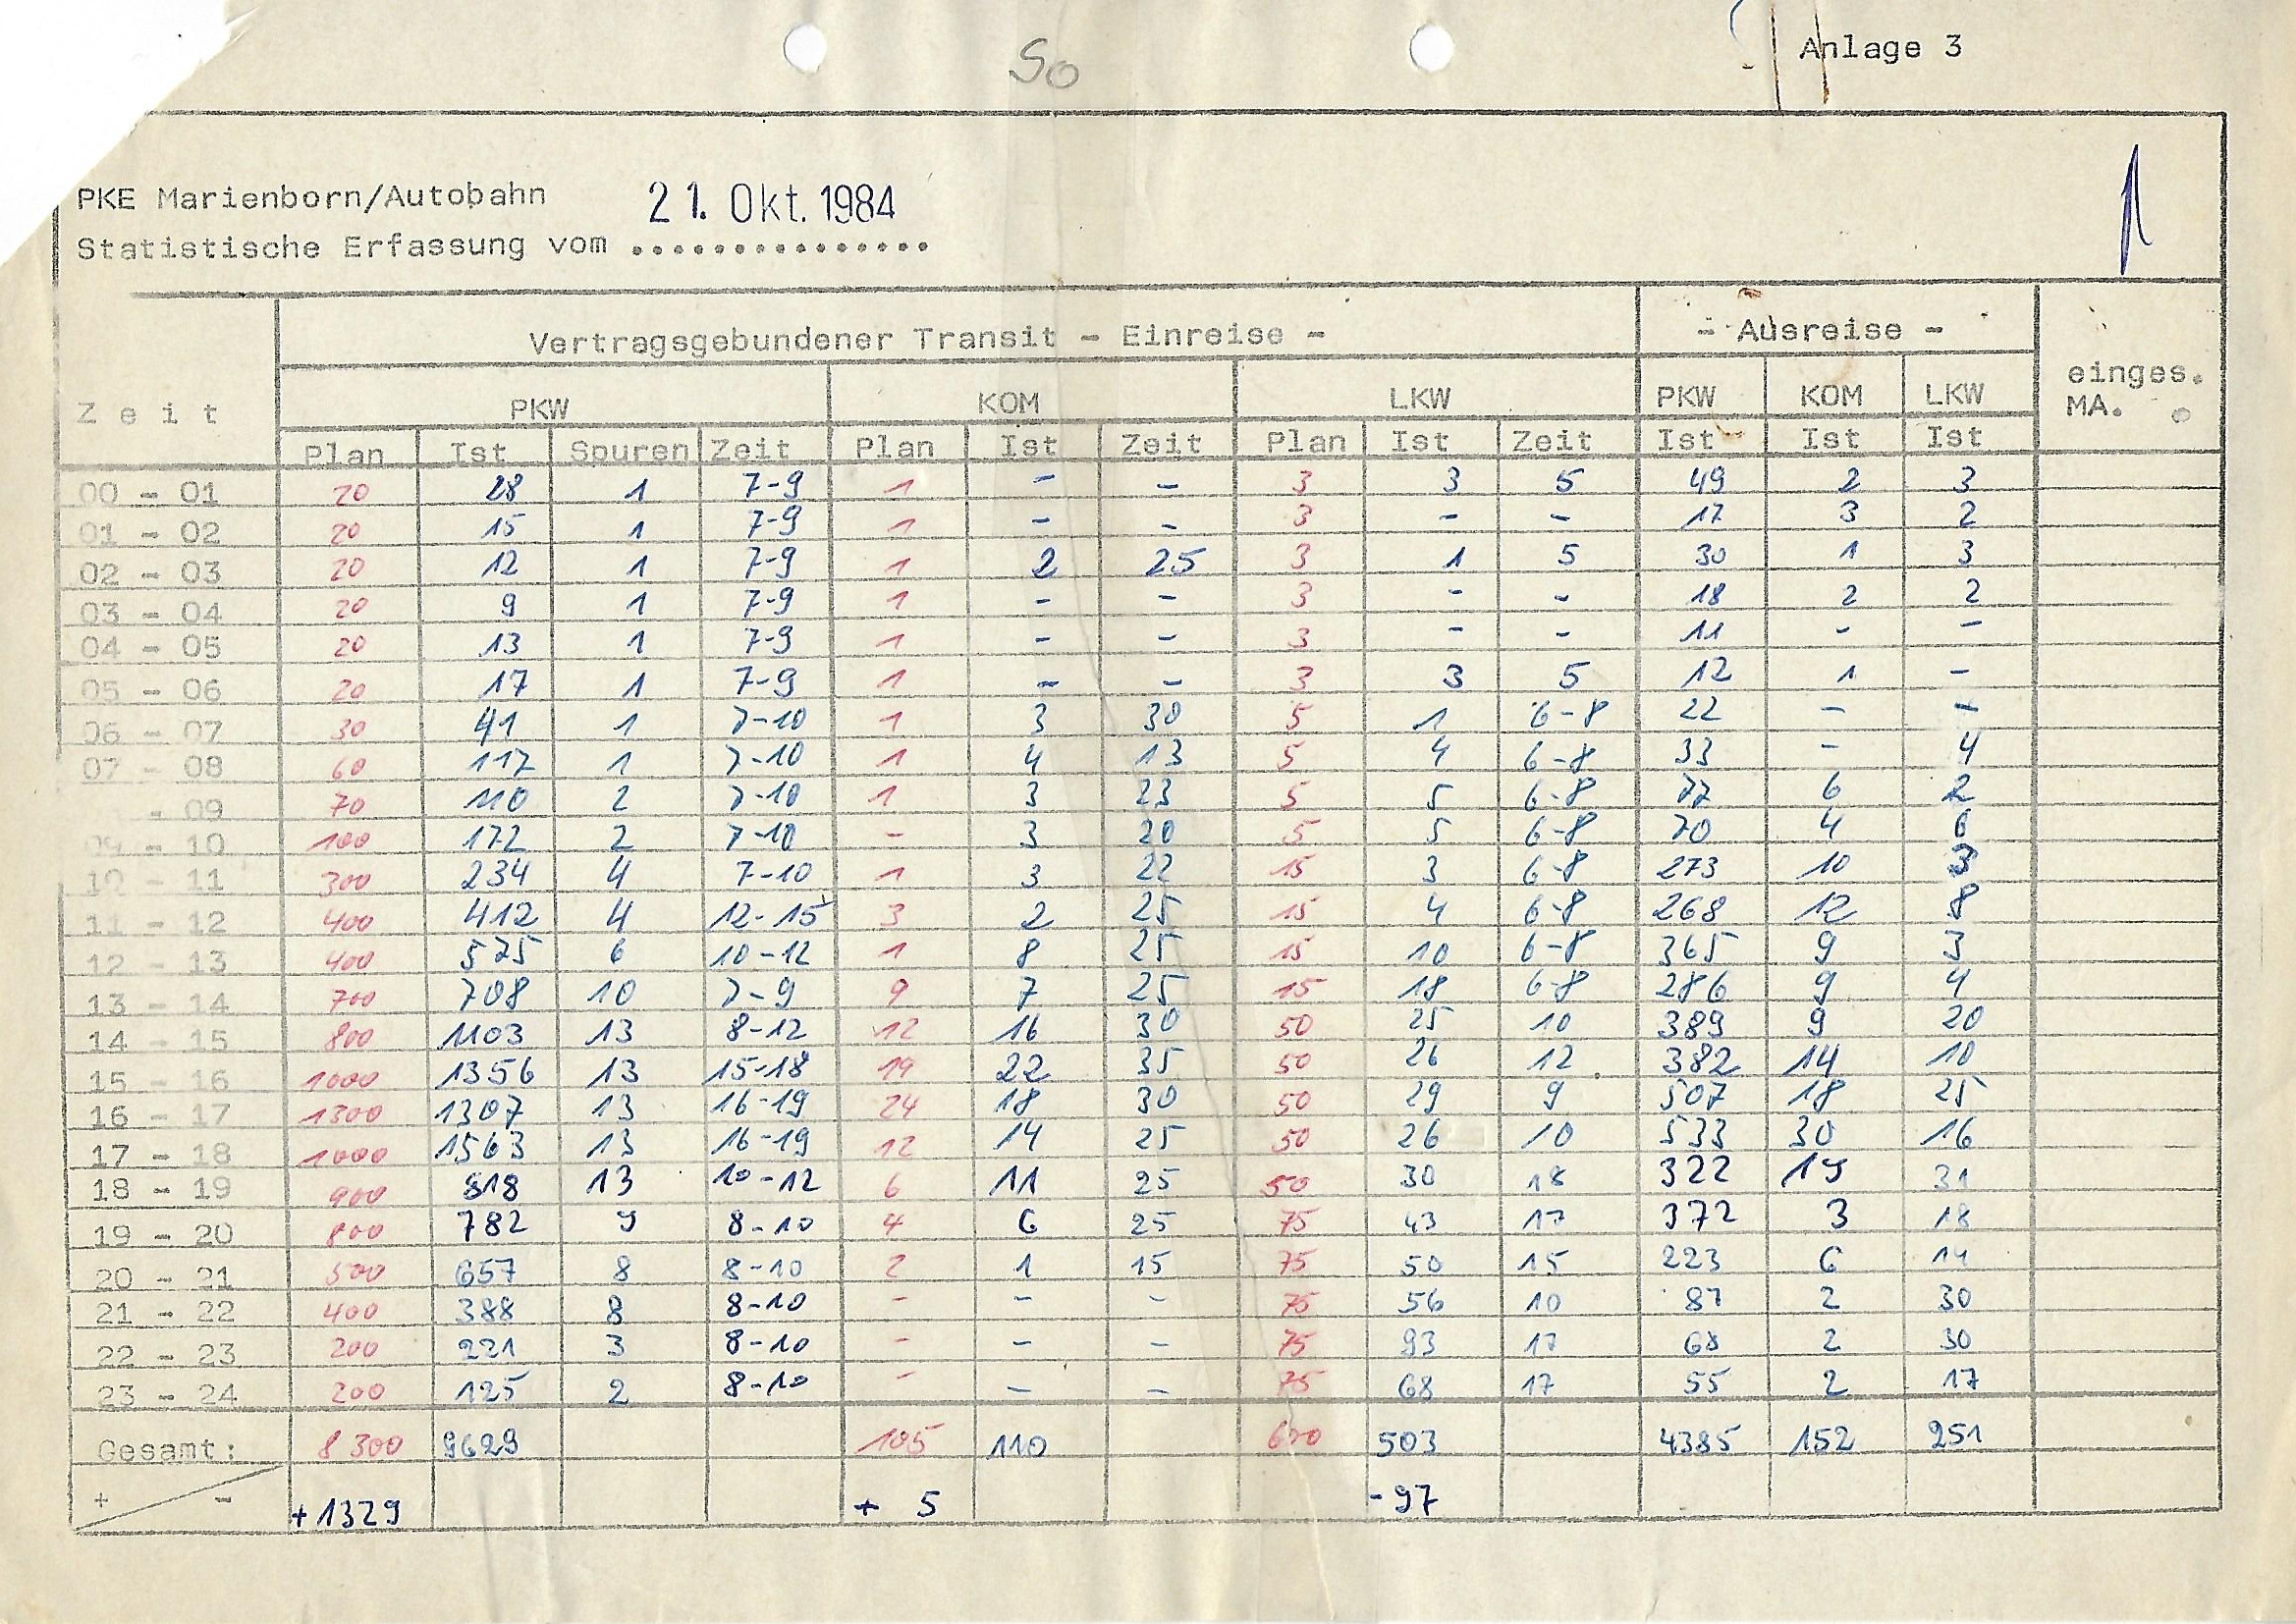 So
Anlage 3
PKE Marienborn/Autobahn 21. Okt. 1984
Statistische Erfassung vom ...............
1
Vertragsgebundener Transit - Einreise - - Ausreise -
Zeit PKW KOM LKW PKW KOM LKW einges. MA.
Plan Ist Spuren Zeit Plan Ist Zeit Plan Ist Zeit Ist Ist Ist
00 - 01 20 28 1 7-9 1 - - 3 3 5 49 2 3
01 - 02 20 15 1 7-9 1 - - 3 - - 17 3 2
02 - 03 20 12 1 7-9 1 2 25 3 1 5 30 1 3
03 - 04 20 9 1 7-9 1 - - 3 - - 18 2 2
04 - 05 20 13 1 7-9 1 - - 3 - - 11 - -
05 - 06 20 17 1 7-9 1 - - 3 3 5 12 1 -
06 - 07 30 41 1 7-10 1 3 30 5 1 6-8 22 - -
07 - 08 60 117 1 7-10 1 4 13 5 4 6-8 33 - 4
- 09 70 110 2 7-10 1 3 23 5 5 6-8 77 6 2
09 - 10 100 172 2 7-10 - 3 20 5 5 6-8 70 4
10 - 11 300 234 4 7-10 1 3 22 15 3 6-8 273 10 3
11 - 12 400 412 4 12-15 3 2 25 15 4 6-8 268 12 8
12 - 13 400 6 10-12 1 8 25 15 10 6-8 365 9 3
13 - 14 700 708 10 7-9 9 7 25 15 18 6-8 286 9 4
14 - 15 800 1103 13 8-12 12 16 30 50 25 10 389 9 20
15 - 16 1000 1356 13 15-18 19 22 35 50 26 12 382 14 10
16 - 17 1300 1307 13 16-19 24 18 30 50 29 9 507 18 25
17 - 18 1000 1563 13 16-19 12 14 25 50 26 10 533 30 16
18 - 19 900 13 10-12 6 11 25 50 30 18 322 19 31
19 - 20 800 782 9 8-10 4 6 25 75 43 17 372 3 18
20 - 21 500 657 8 8-10 2 1 15 75 50 15 223 6 14
21 - 22 400 388 8 8-10 - - - 75 56 10 87 2 30
22 - 23 200 221 3 8-10 - - - 75 93 17 68 2 30
23 - 24 200 125 2 8-10 - - - 75 68 17 55 2 17
Gesamt: 8300 9629 105 110 600 503 4385 152 251
+ - +1329 + 5 -97